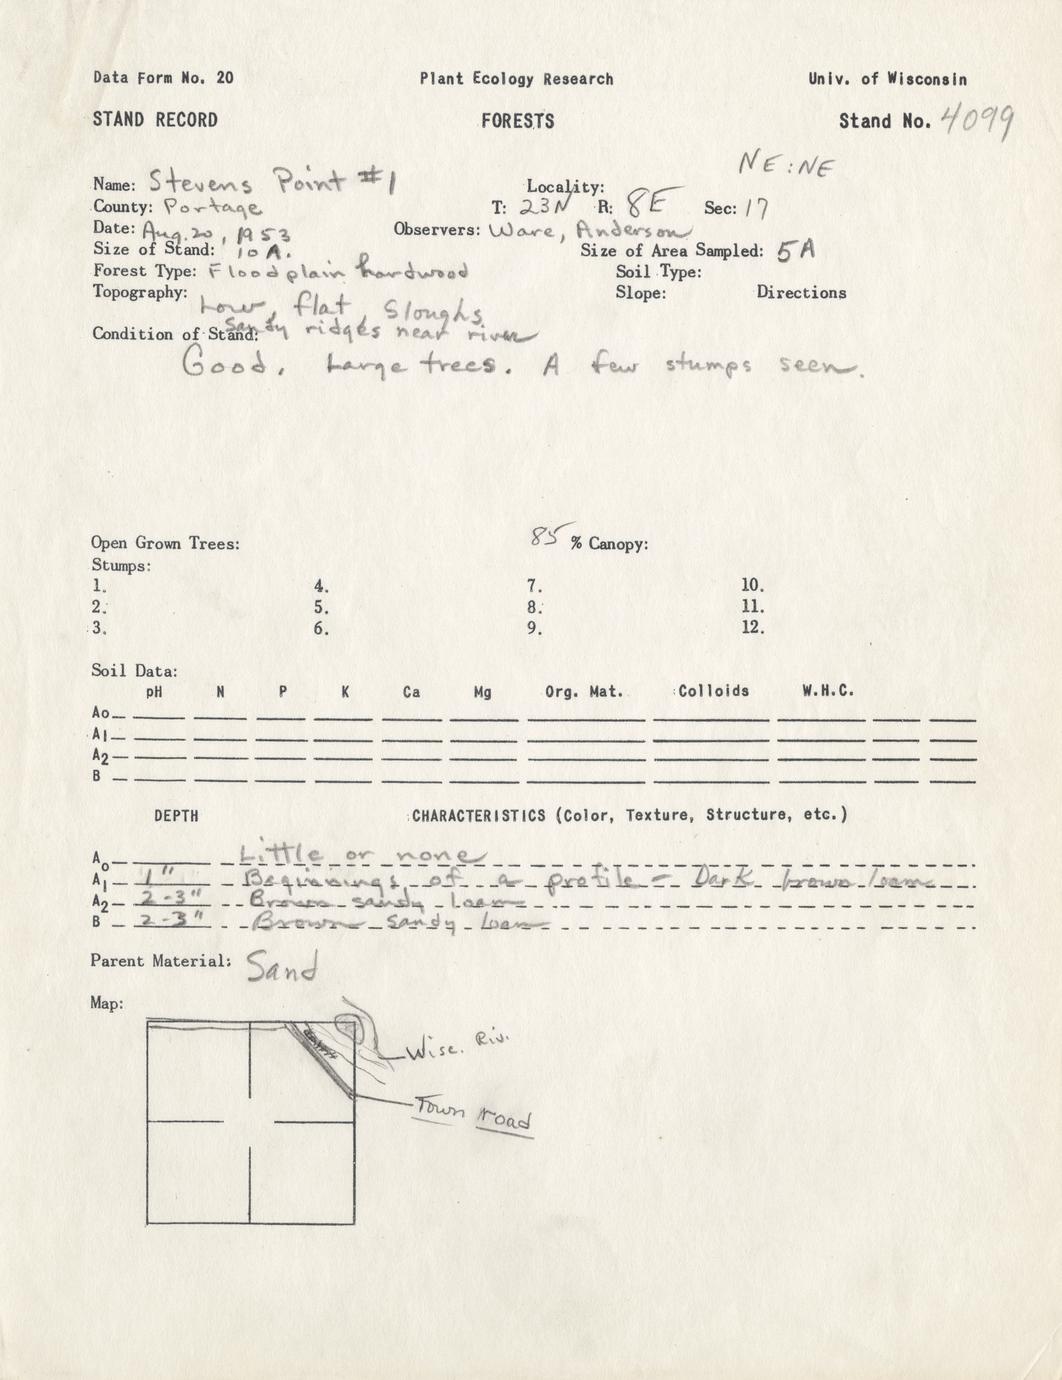 Data Form No. 20 Plant Ecology Research Univ. of Wisconsin
STAND RECORD FORESTS Stand No. 4099
NE:NE
Name: Stevens Point #1 Locality:
County: Portage T: 23N R: 8E Sec: 17
Date: Aug. 20, 1953 Observers: Ware, Anderson
Size of Stand: 10 A. Size of Area Sampled: 5 A
Forest Type: Floodplain hardwood Soil Type:
Topography: Low, flat, Sloughs Slope: Directions
Sandy ridges near river
Condition of Stand:
Good. Large trees. A few stumps seen.
Open Grown Trees: 85 % Canopy:
Stumps:
1. 4. 7. 10.
2. 5. 8. 11.
3. 6. 9. 12.
Soil Data:
pH N P K Ca Mg Org. Mat. Colloids W.H.C.
Ao
A1
A2
B
DEPTH CHARACTERISTICS (Color, Texture, Structure, etc.)
Ao Little or none
A1 1" Beginnings of a profile - Dark brown loam
A2 2-3" Brown sandy loam
B 2-3" Brown sandy loam
Parent Material: Sand
Map:
Wisc. Riv.
Town road